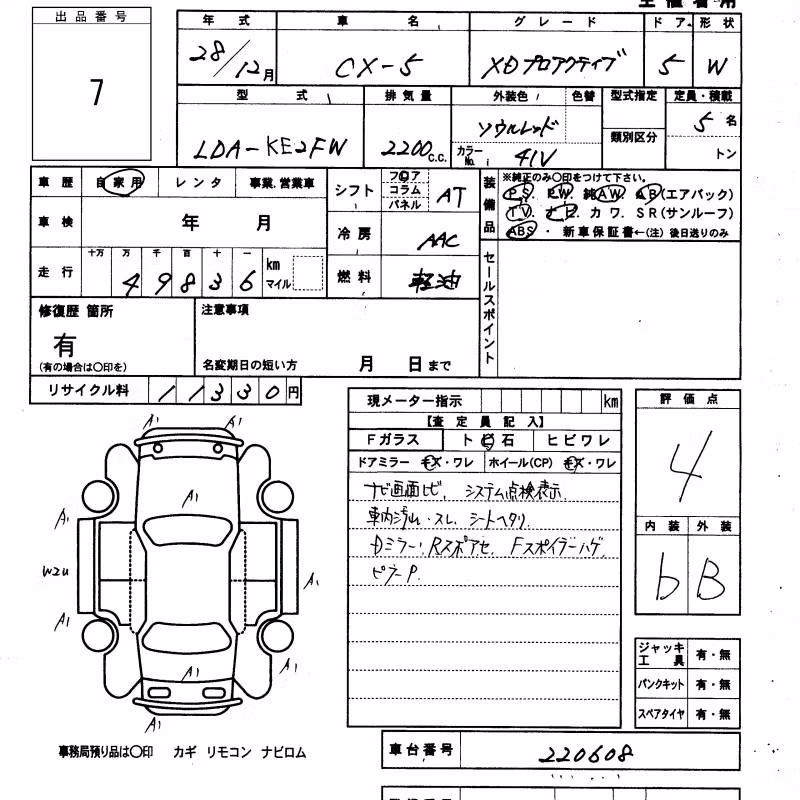 出品番号
7
年式 車名 グレード ドア 形状
28/12月 CX-5 XDプロアクティブ 5 W
型式 排気量 外装色 色替 型式指定 定員・積載
LDA-KE2FW 2200c.c. ソウルレッド 類別区分 5名
カラーNo. 41V トン
車歴 自家用 レンタ 事業.営業車
車検 年 月
走行 十万 万 千 百 十 一 km マイル
49836
シフト フロア コラム パネル AT
冷房 AAC
燃料 軽油
装備品
※純正のみ○印をつけて下さい。
PS. PW. 純AW. AB(エアバック)
TV. ナビ. カワ. SR(サンルーフ)
ABS・新車保証書←(注)後日送りのみ
セールスポイント
修復歴 箇所
有
(有の場合は○印を)
注意事項
名変期日の短い方 月 日まで
リサイクル料 11330円
現メーター指示 km
【査定員記入】
Fガラス ト ビ 石 ヒビワレ
ドアミラー キズ・ワレ ホイール(CP) キズ・ワレ
ナビ画面ヒビ、システム点検表示
車内汚れ・スレ、シートヘタリ
Dミラー、Rスポアセ、Fスポイラーハゲ
ピラーP.
評価点
4
内装 外装
b B
ジャッキ 工具 有・無
パンクキット 有・無
スペアタイヤ 有・無
A1 A1
A1
A1
W2U
A1
A1
A1
A1
A1
事務局預り品は○印 カギ リモコン ナビロム
車台番号 220608